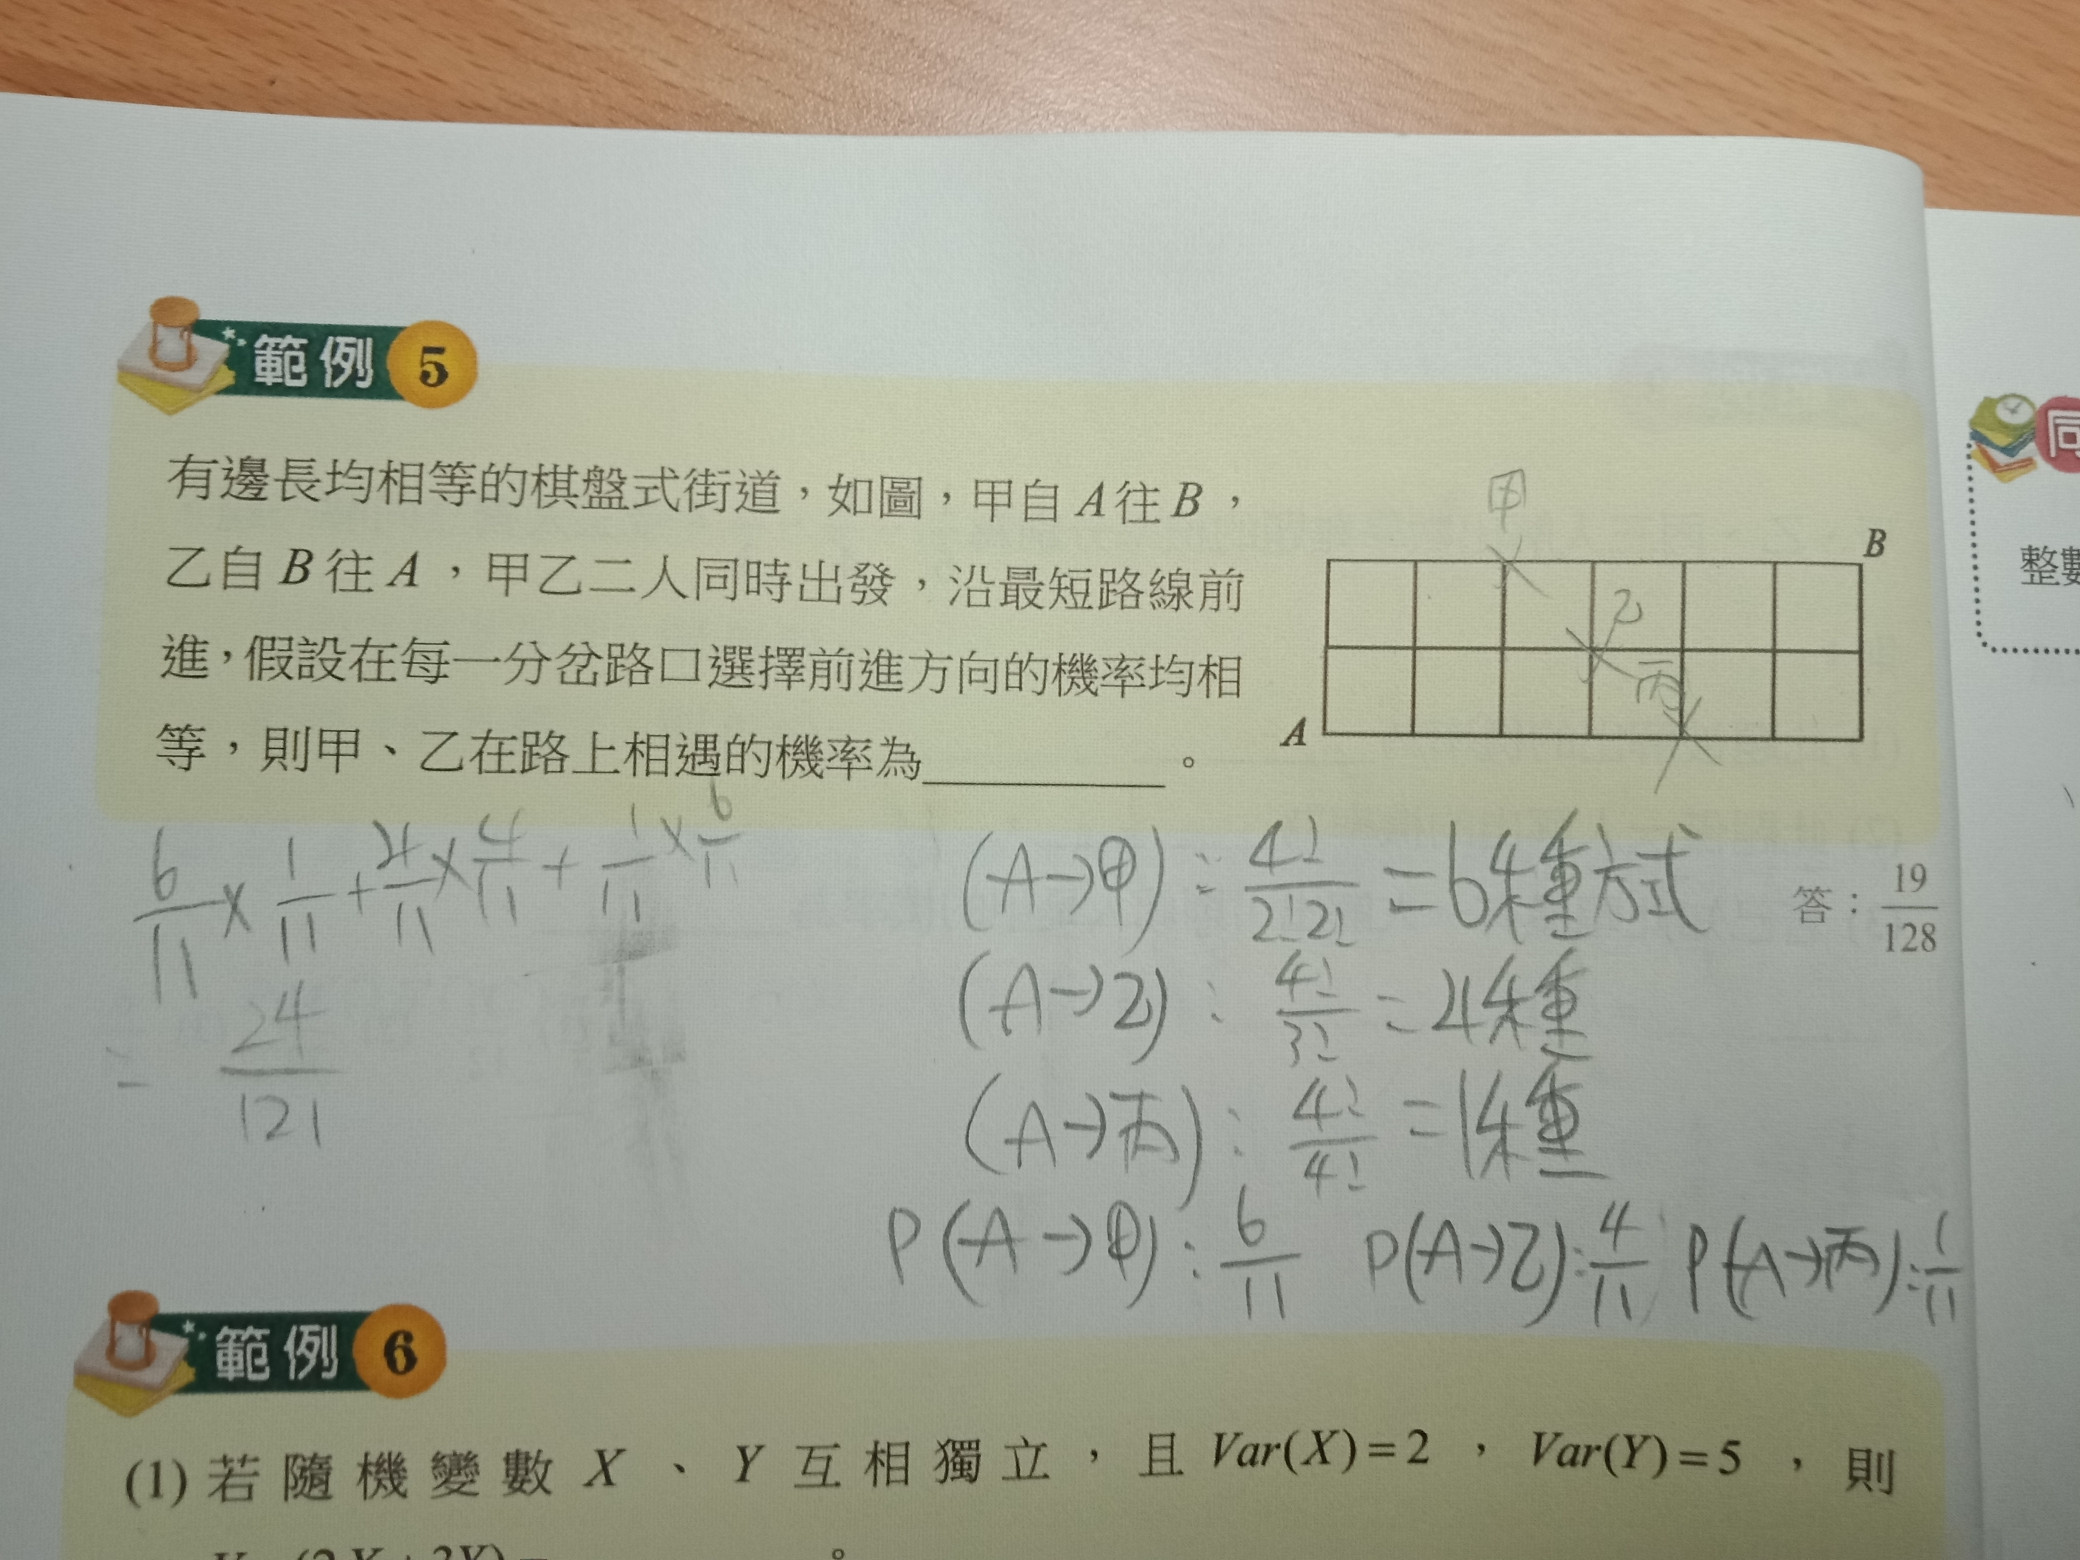 範例 5
有邊長均相等的棋盤式街道，如圖，甲自 A 往 B，
乙自 B 往 A，甲乙二人同時出發，沿最短路線前
進，假設在每一分岔路口選擇前進方向的機率均相
等，則甲、乙在路上相遇的機率為＿＿＿＿＿。
甲
B
乙
丙
A
6/11 × 1/11 + 4/11 × 4/11 + 1/11 × 6/11
= 24/121
(A→甲) : 4!/2!2! = 6種方式
(A→乙) : 4!/3! = 4種
(A→丙) : 4!/4! = 1種
P(A→甲) : 6/11 P(A→乙) : 4/11 P(A→丙) : 1/11
答：19/128
範例 6
(1) 若隨機變數 X 、 Y 互相獨立，且 Var(X) = 2 ， Var(Y) = 5 ，則
同
整數